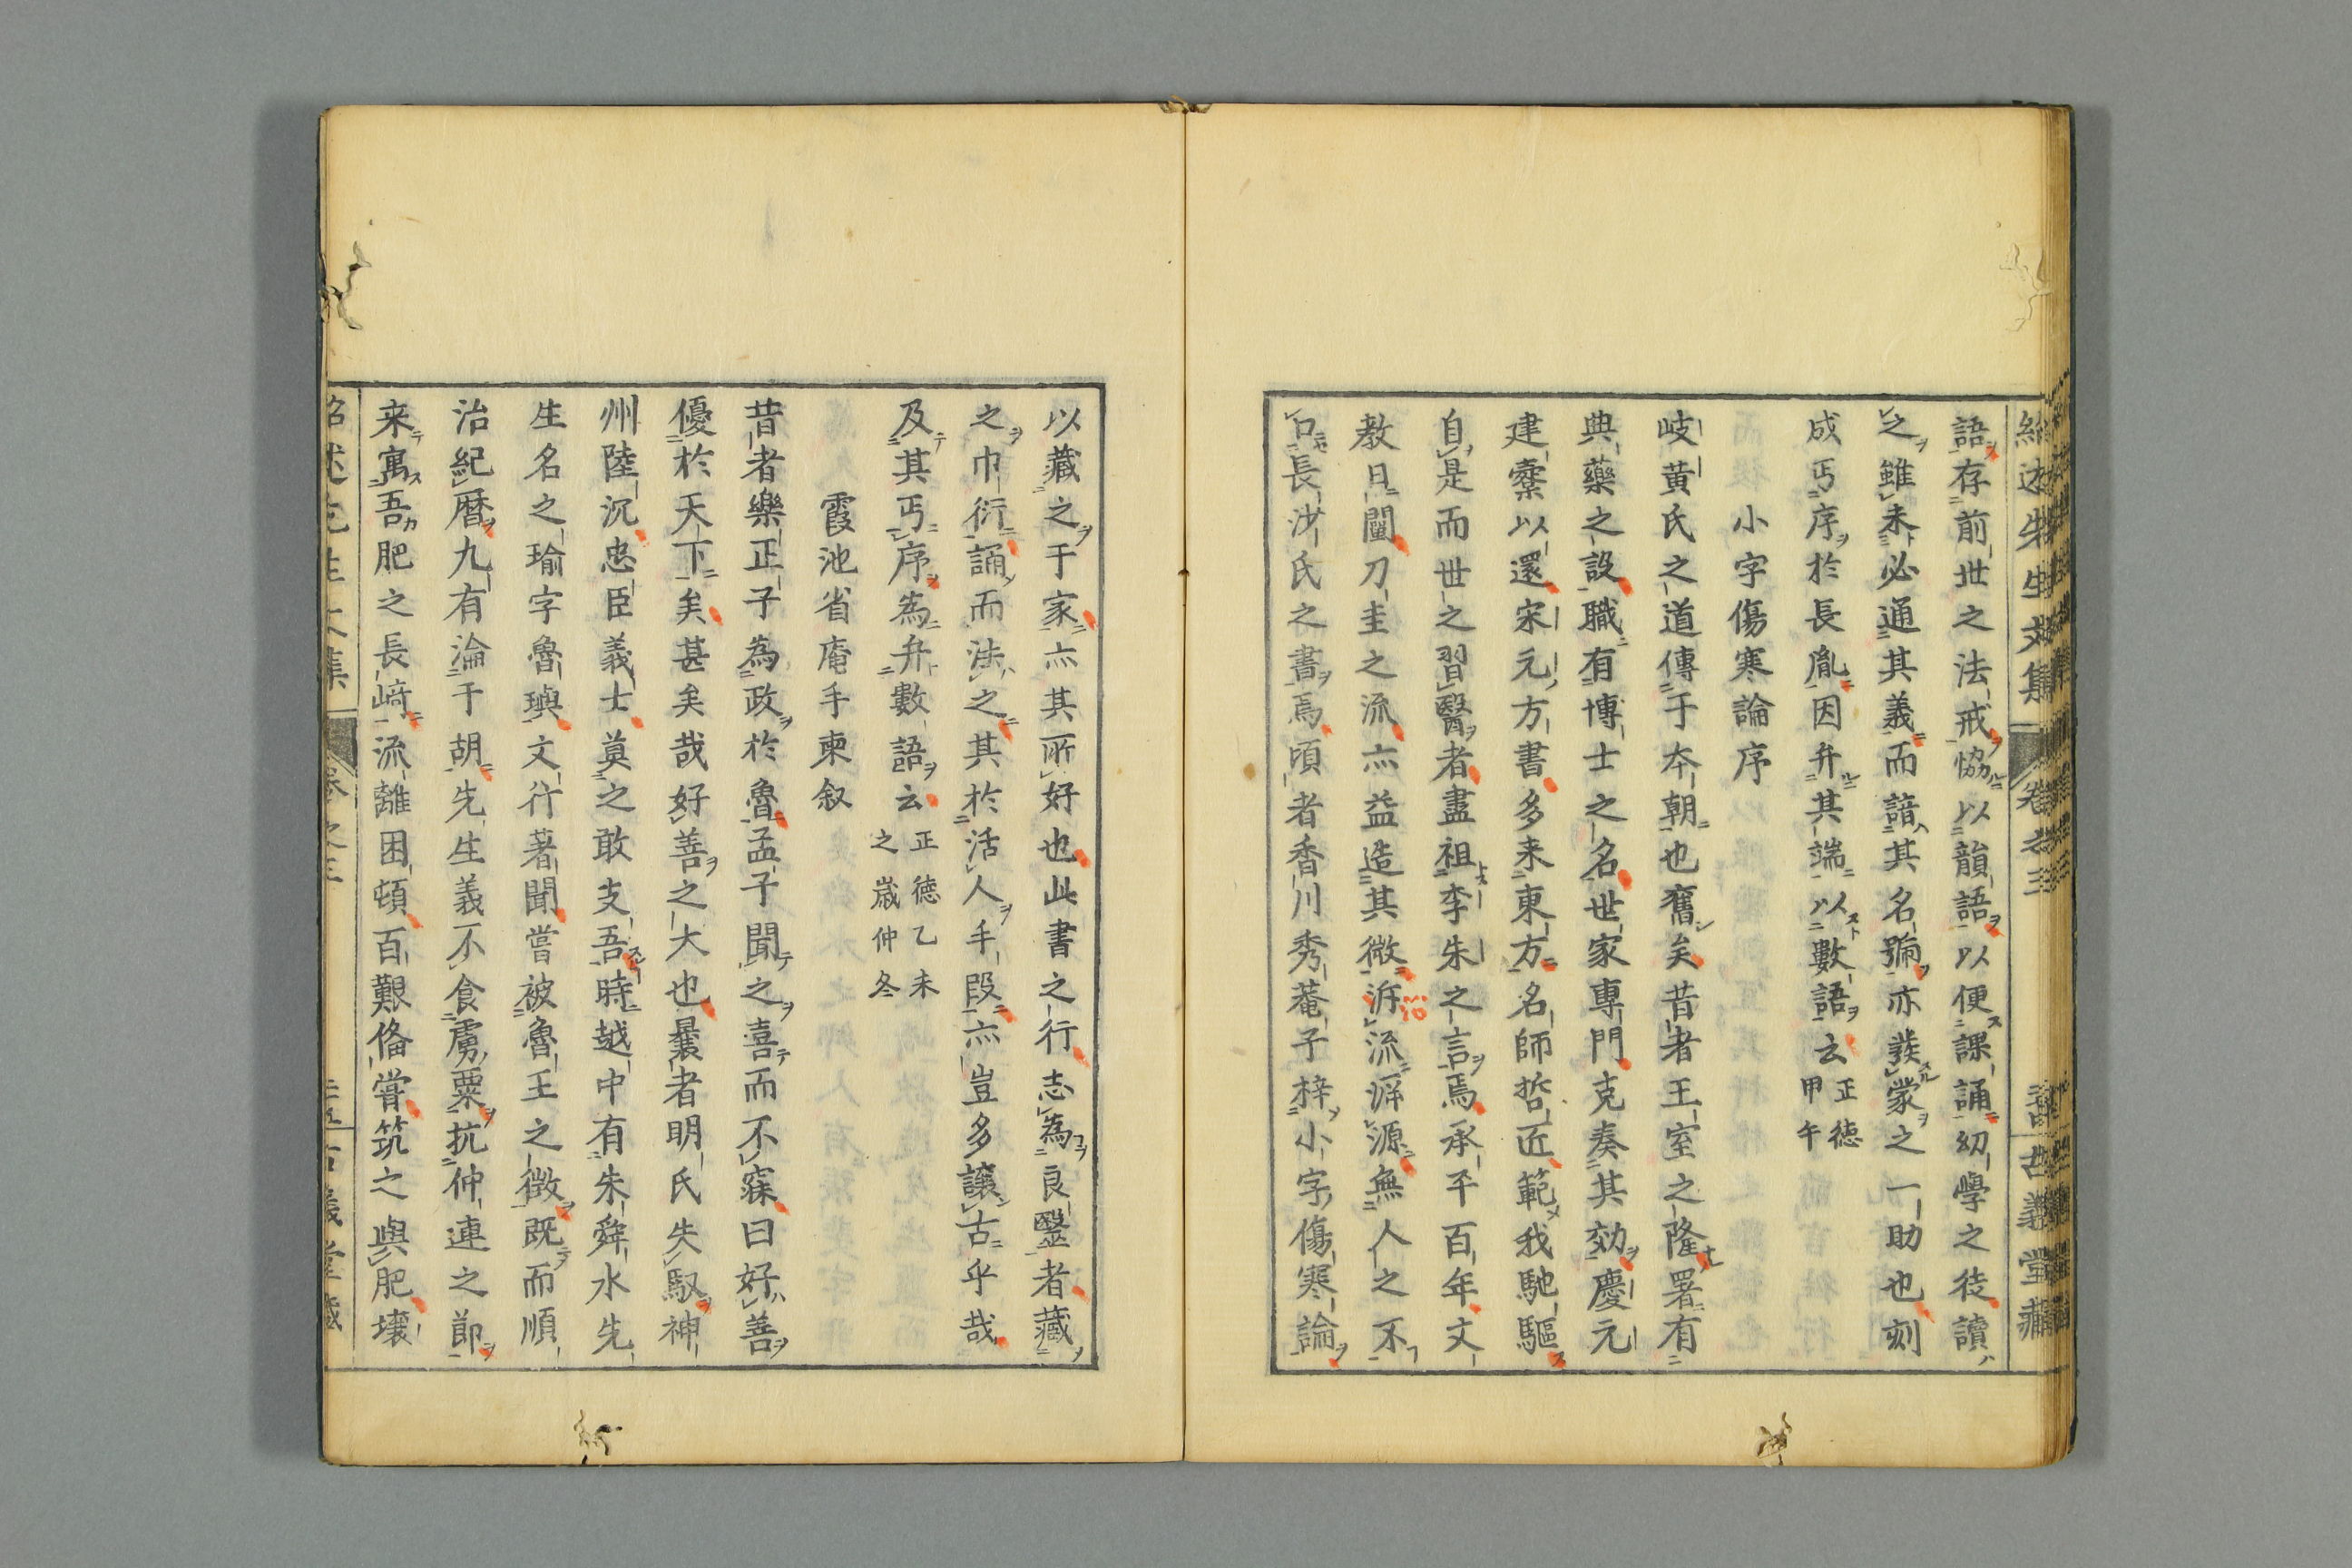 紹述先生文集 卷之三 古義堂藏
語存前世之法戒恊以韻語以便課誦幼學之徒讀
之雖未必通其義而諳其名號亦發蒙之一助也刻
成丐序於長胤因弁其端以數語云正德甲午
小字傷寒論序
岐黃氏之道傳于本朝也舊矣昔者王室之隆署有
典藥之設職有博士之名世家專門克奏其効慶元
建櫜以還宋元方書多来東方名師哲匠範我馳驅
自是而世之習醫者盡祖李朱之言焉承平百年文
教日闡刀圭之流亦益造其微泝流溯源無人之不
口長沙氏之書焉頃者香川秀菴子梓小字傷寒論
以藏之于家亦其所好也此書之行志為良醫者藏
之巾衍誦而法之其於活人手段亦豈多讓古乎哉
及其丐序為弁數語云正德乙未之歲仲冬
霞池省庵手柬叙
昔者樂正子為政於魯孟子聞之喜而不寐曰好善
優於天下矣甚矣哉好善之大也曩者明氏失馭神
州陸沉忠臣義士莫之敢支吾時越中有朱舜水先
生名之瑜字魯璵文行著聞嘗被魯王之徵既而順
治紀暦九有淪于胡先生義不食虜粟抗仲連之節
来寓吾肥之長﨑流離困頓百艱俻嘗筑之與肥壤
紹述先生文集 卷之三 古義堂藏